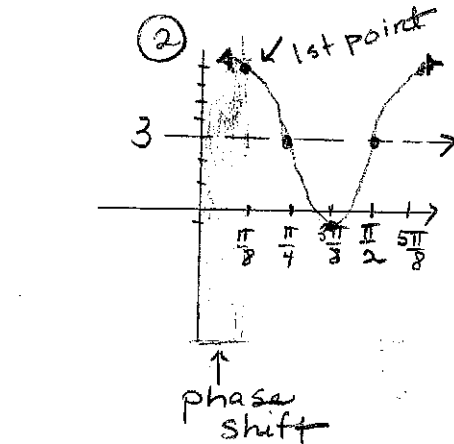 ② 1st point
3
π/8 π/4 3π/8 π/2 5π/8
phase
shift